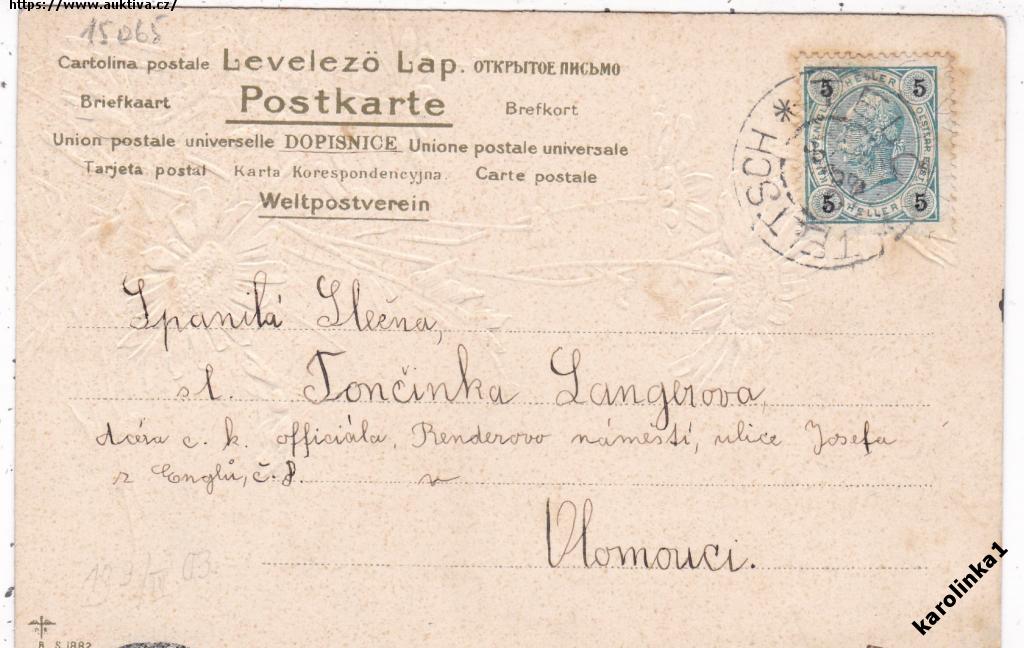 https://www.auktiva.cz/
15065
Cartolina postale Levelező Lap. ОТКРЫТОЕ ПИСЬМО
Briefkaart Postkarte Brefkort
Union postale universelle DOPISNICE Unione postale universale
Tarjeta postal Karta Korespondencyjna. Carte postale
Weltpostverein
5 HELLER 5
5 HELLER 5
TSCH *
Spanilá Slečna,
sl. Tončinka Langerova,
dcéra c. k. officiála, Renderovo náměstí, ulice Josefa
z Englů, č. 8. v
Olomouci.
03.
B. S. 1882
karolinka1